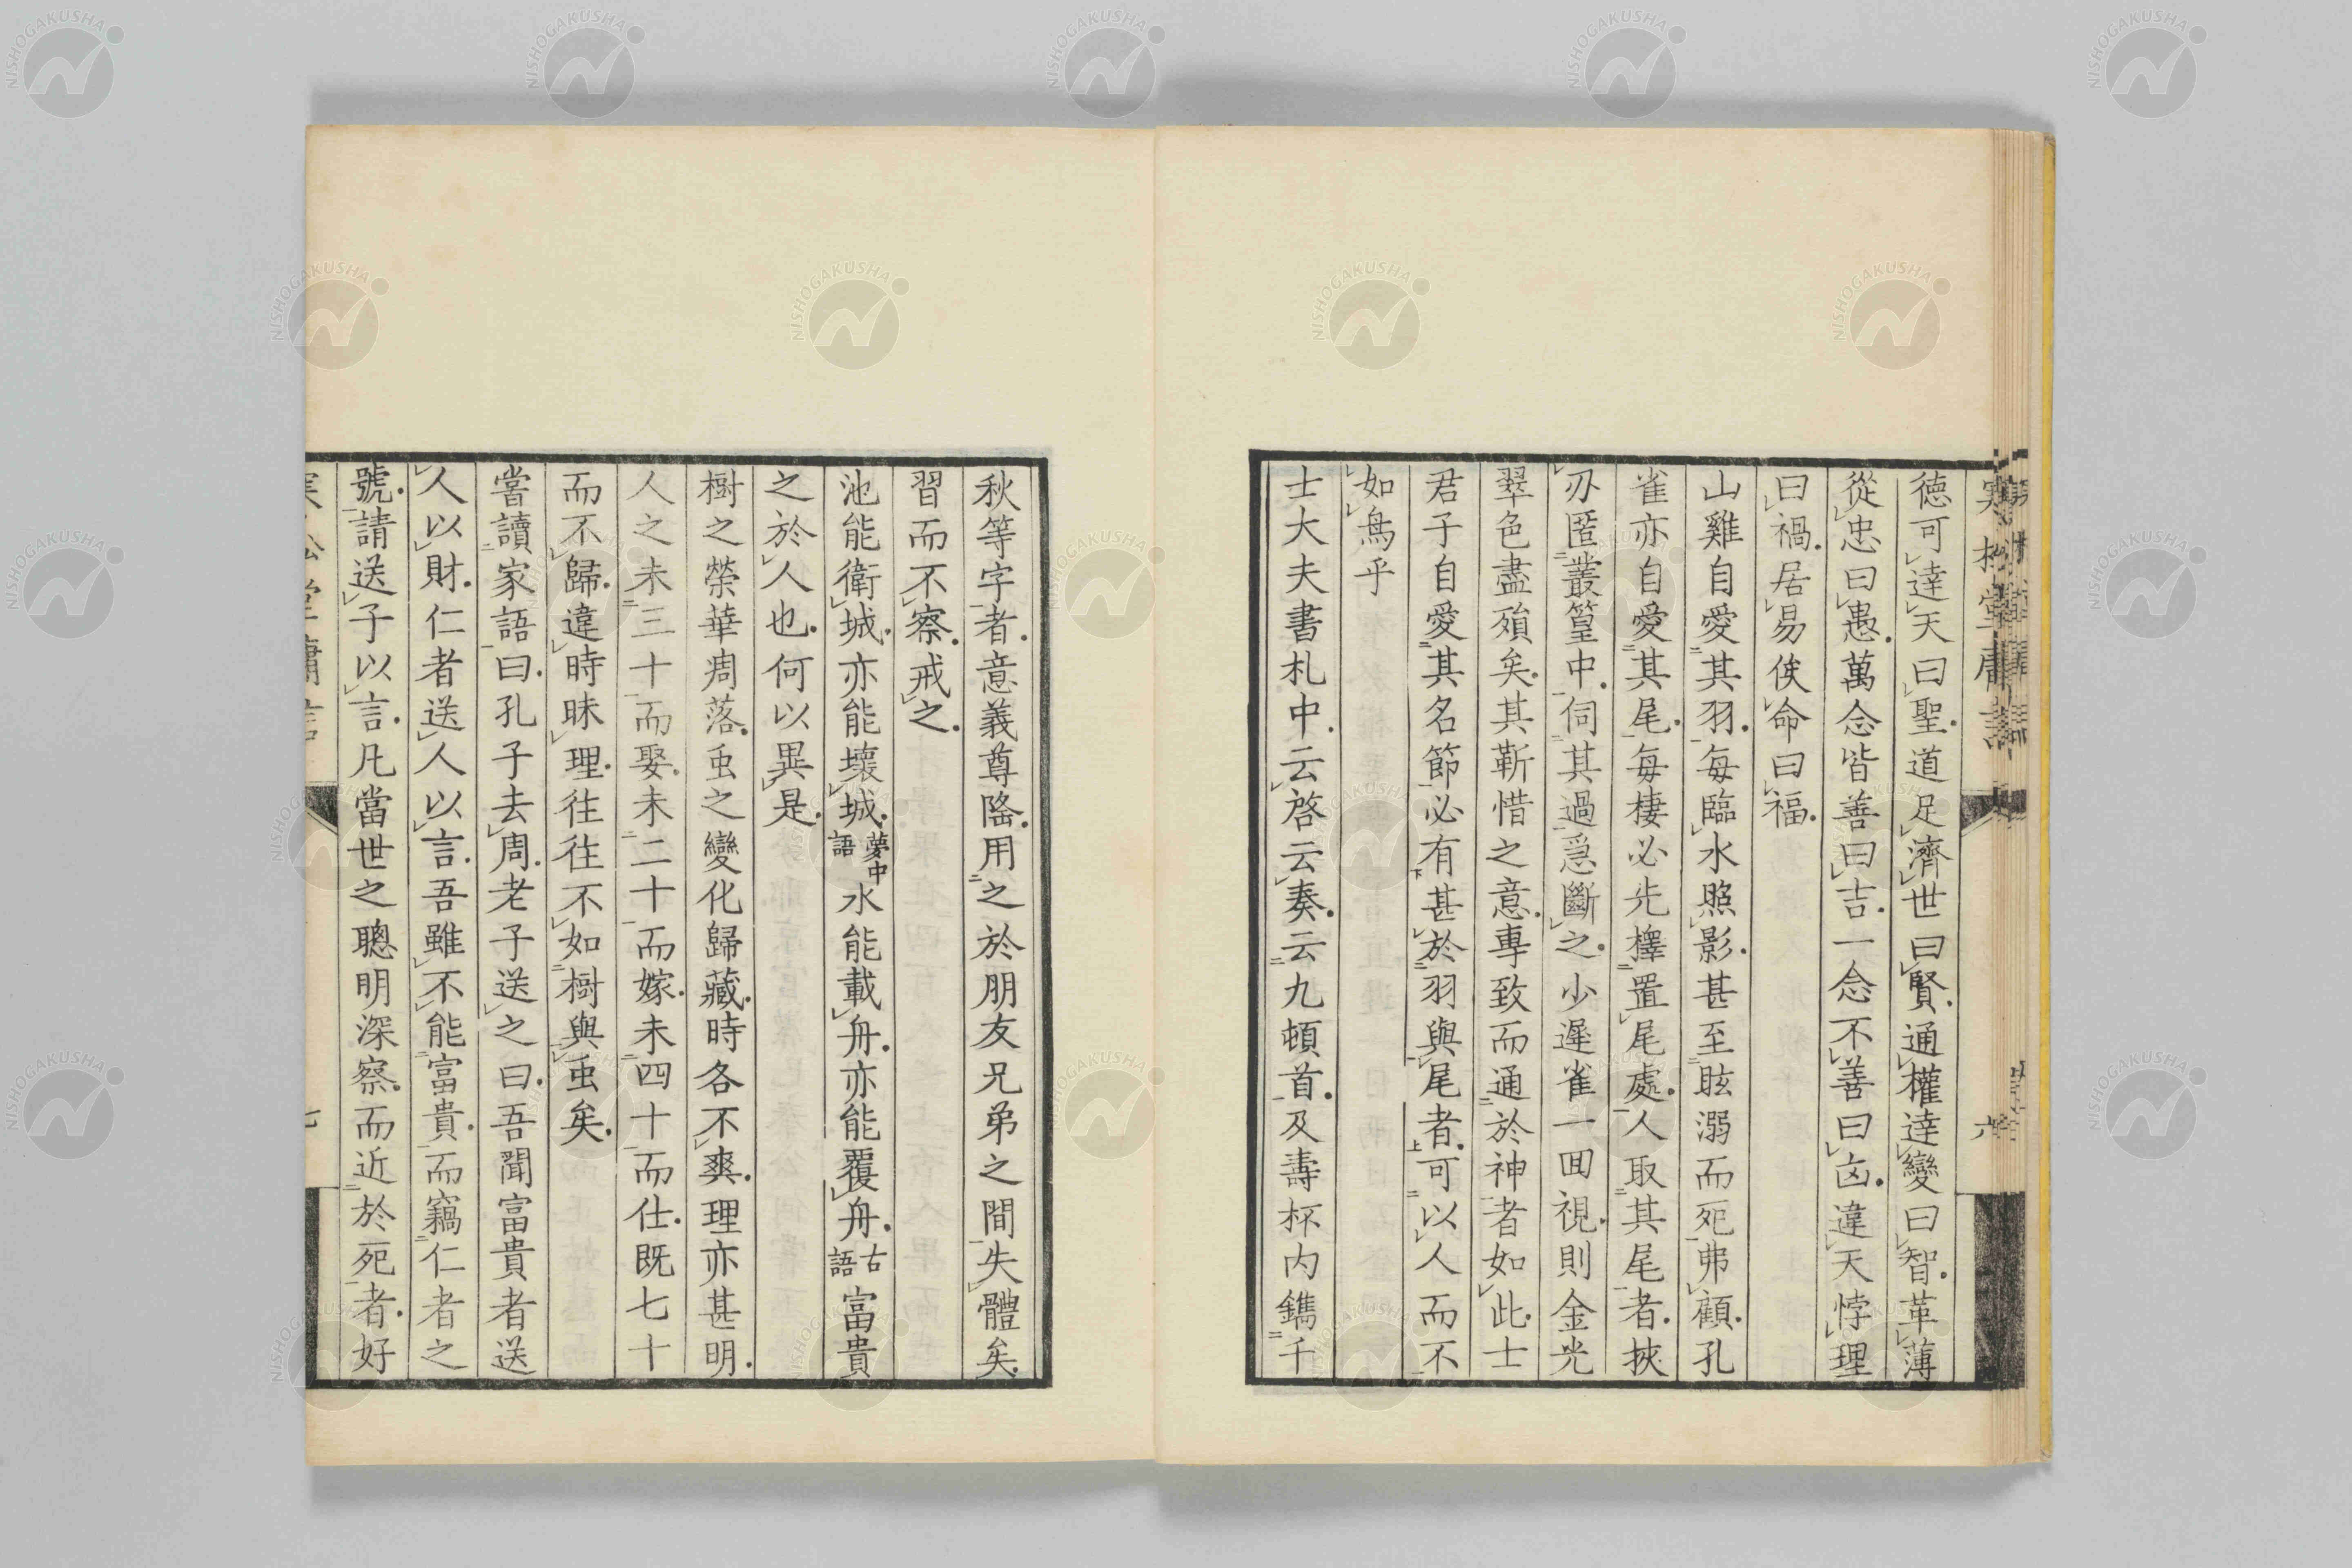 德可達天曰聖道足濟世曰賢通權達變曰智革薄
從忠曰愚萬念皆善曰吉一念不善曰凶違天悖理
曰禍居易俟命曰福
山雞自愛其羽每臨水照影甚至眩溺而死弗顧孔
雀亦自愛其尾每棲必先擇置尾處人取其尾者挾
刃匿叢篁中伺其過急斷之少遲雀一回視則金光
翠色盡殞矣其靳惜之意專致而通於神者如此士
君子自愛其名節必有甚於羽與尾者可以人而不
如鳥乎
士大夫書札中云啓云奏云九頓首及壽杯内鐫千
秋等字者意義尊隆用之於朋友兄弟之間失體矣
習而不察戒之
池能衛城亦能壞城夢中語水能載舟亦能覆舟古語富貴
之於人也何以異是
樹之榮華凋落虫之變化歸藏時各不爽理亦甚明
人之未三十而娶未二十而嫁未四十而仕既七十
而不歸違時昧理往往不如樹與虫矣
嘗讀家語曰孔子去周老子送之曰吾聞富貴者送
人以財仁者送人以言吾雖不能富貴而竊仁者之
號請送子以言凡當世之聰明深察而近於死者好
六
七
NISHOGAKUSHA